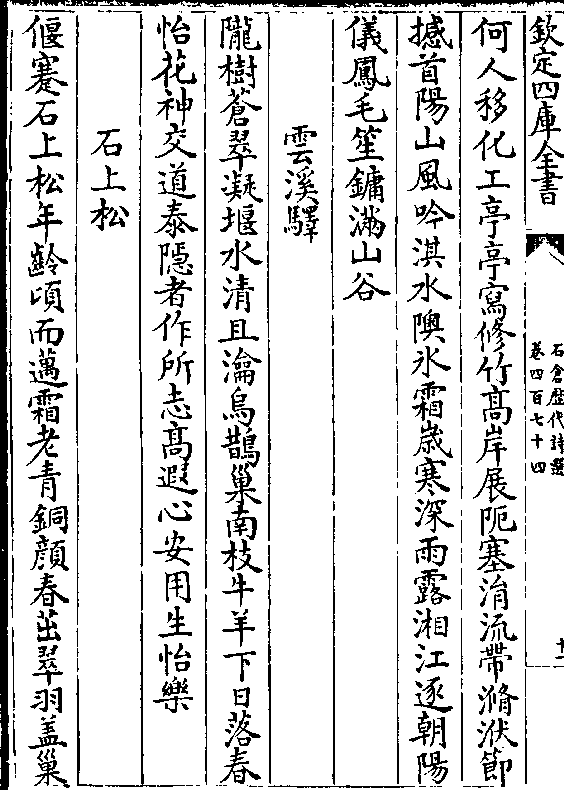 欽定四庫全書
石倉歷代詩選
卷四百七十四
十二
何人移化工亭亭寫修竹髙岸展阨塞涓流帶滫洑節
撼首陽山風吟淇水隩氷霜嵗寒深雨露湘江逐朝陽
儀鳳毛笙鏞滿山谷
雲溪驛
隴樹蒼翠凝堰水清且瀹烏鵲巢南枝牛羊下日落春
怡花神交道泰隱者作所志髙遐心安用生怡樂
石上松
偃蹇石上松年齡頃而邁霜老青銅顔春茁翠羽盖巢